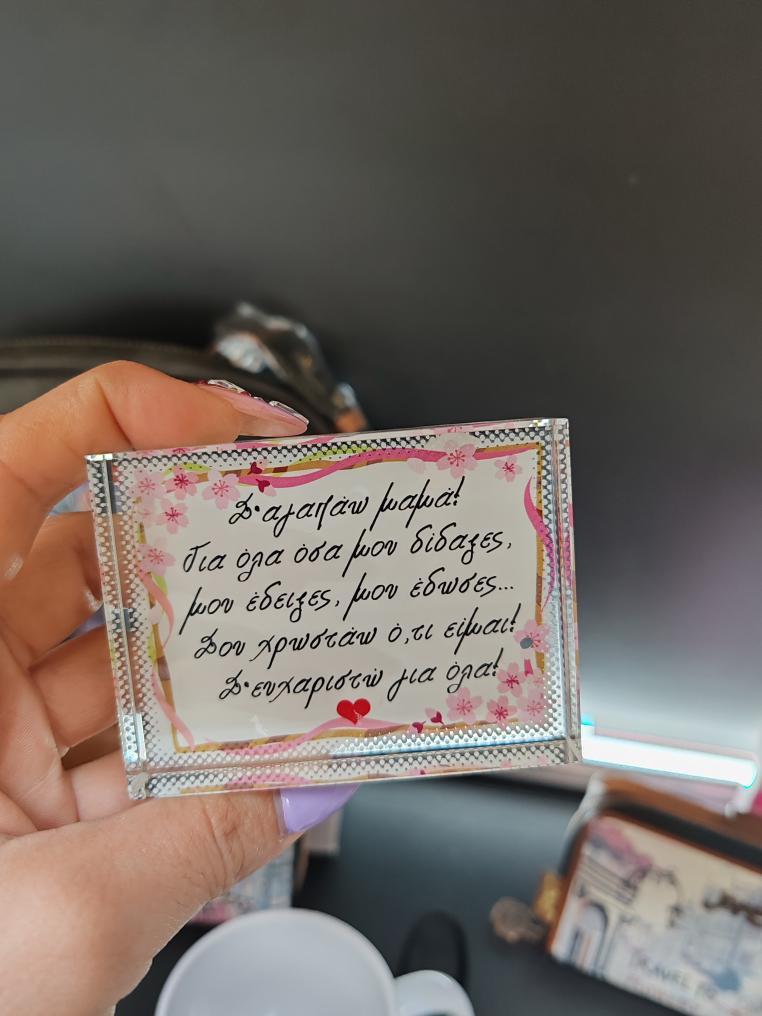 Σ'αγαπάω μαμά!
Για όλα όσα μου δίδαξες,
μου έδειξες, μου έδωσες...
Σου χρωστάω ό,τι είμαι!
Σ'ευχαριστώ για όλα!
TRAVEL